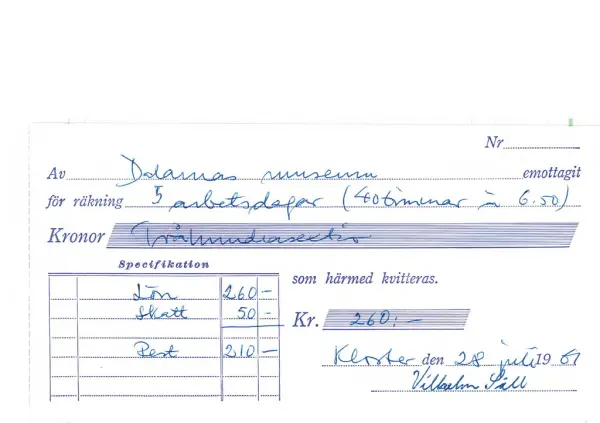 Nr
Av Dalarnas museum emottagit
för räkning 5 arbetsdagar (40 timmar à 6.50)
Kronor Tvåhundrasextio
Specifikation
som härmed kvitteras.
Lön 260 –
Skatt 50 –
Kr. 260:–
Rest 210 –
Kloster den 28 juli 1961
Vilhelm Säll